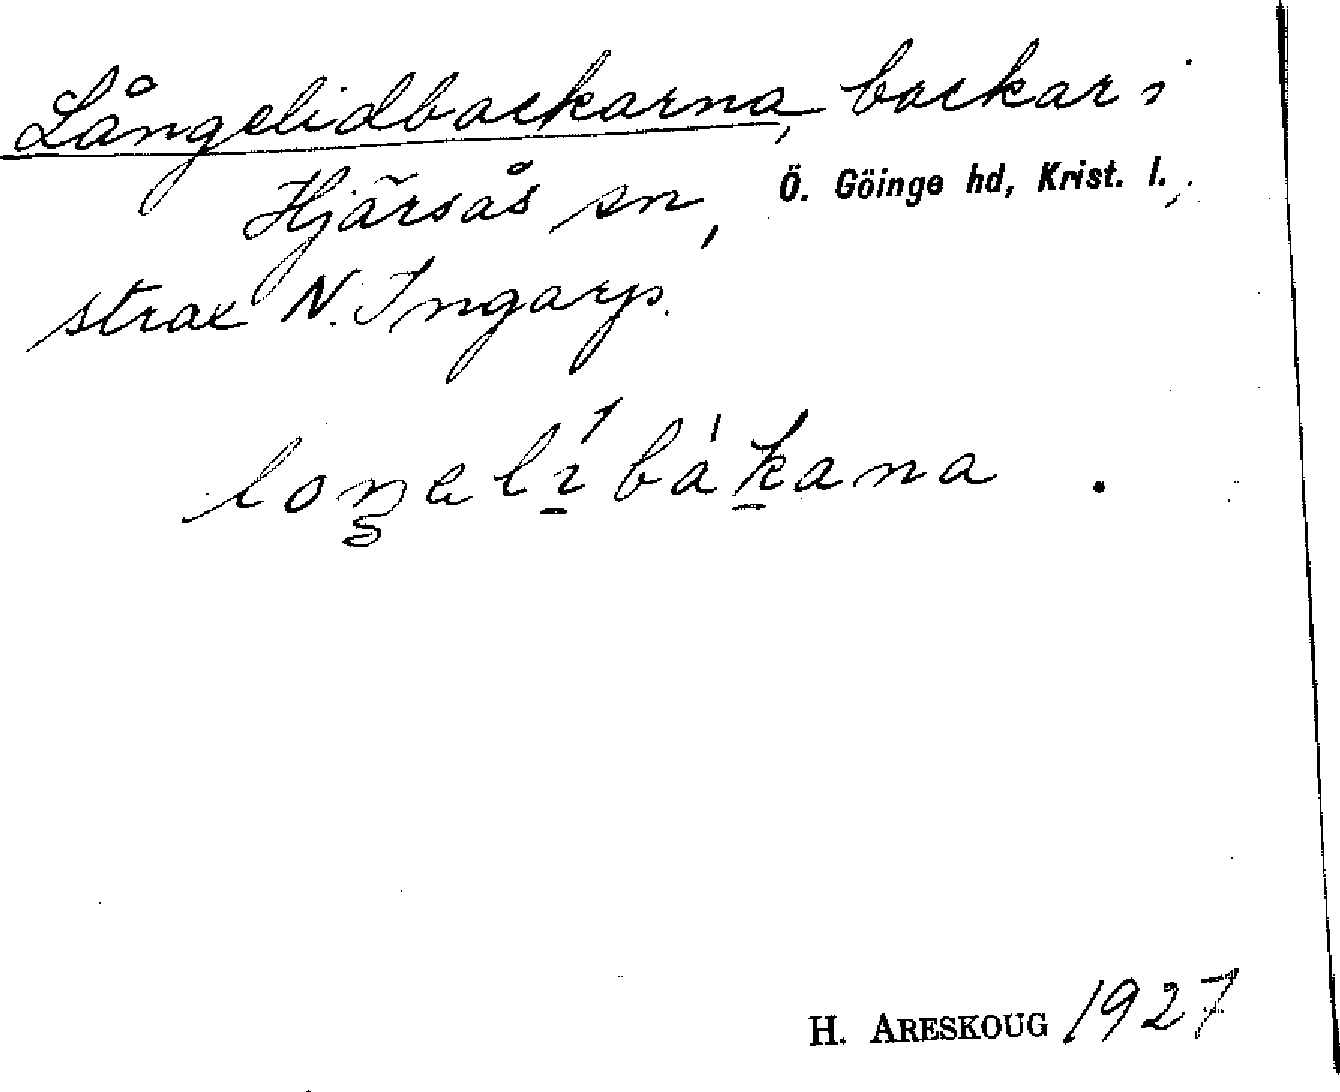 Långelidbackarna, backar i
Hjärsås sn, Ö. Göinge hd, Krist. l.,
strax N. Ingarp.
loŋelíbákana.
H. ARESKOUG 1927